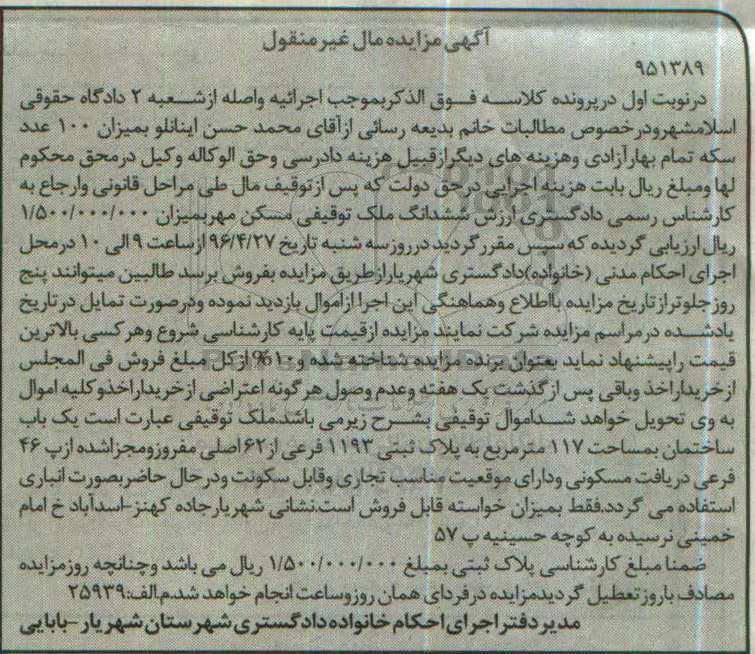 آگهی مزایده مال غیر منقول
۹۵۱۳۸۹
درنوبت اول درپرونده کلاسه فوق الذکربموجب اجرائیه واصله ازشعبه ۲ دادگاه حقوقی
اسلامشهرودرخصوص مطالبات خانم بدیعه رسائی ازآقای محمد حسن اینانلو بمیزان ۱۰۰ عدد
سکه تمام بهارآزادی وهزینه های دیگرازقبیل هزینه دادرسی وحق الوکاله وکیل درمحق محکوم
لها ومبلغ ریال بابت هزینه اجرایی درحق دولت که پس ازتوقیف مال طی مراحل قانونی وارجاع به
کارشناس رسمی دادگستری ارزش ششدانگ ملک توقیفی مسکن مهربمیزان ۱/۵۰۰/۰۰۰/۰۰۰
ریال ارزیابی گردیده که سپس مقررگردید درروزسه شنبه تاریخ ۹۶/۴/۲۷ ازساعت ۹ الی ۱۰ درمحل
اجرای احکام مدنی (خانواده)دادگستری شهریارازطریق مزایده بفروش برسد طالبین میتوانند پنج
روزجلوترازتاریخ مزایده بااطلاع وهماهنگی این اجرا ازاموال بازدید نموده ودرصورت تمایل درتاریخ
یادشده درمراسم مزایده شرکت نمایند مزایده ازقیمت پایه کارشناسی شروع وهرکسی بالاترین
قیمت راپیشنهاد نماید بعنوان برنده مزایده شناخته شده و۱۰%ازکل مبلغ فروش فی المجلس
ازخریداراخذ وباقی پس ازگذشت یک هفته وعدم وصول هرگونه اعتراضی ازخریداراخذوکلیه اموال
به وی تحویل خواهد شداموال توقیفی بشرح زیرمی باشد.ملک توقیفی عبارت است یک باب
ساختمان بمساحت ۱۱۷ مترمربع به پلاک ثبتی ۱۱۹۳ فرعی از۶۲اصلی مفروزومجزاشده ازپ ۴۶
فرعی دریافت مسکونی ودارای موقعیت مناسب تجاری وقابل سکونت ودرحال حاضربصورت انباری
استفاده می گردد.فقط بمیزان خواسته قابل فروش است.نشانی شهریارجاده کهنز-اسدآباد خ امام
خمینی نرسیده به کوچه حسینیه پ ۵۷
ضمنا مبلغ کارشناسی پلاک ثبتی بمبلغ ۱/۵۰۰/۰۰۰/۰۰۰ ریال می باشد وچنانچه روزمزایده
مصادف باروزتعطیل گردیدمزایده درفردای همان روزوساعت انجام خواهد شد.م.الف:۲۵۹۳۹
مدیردفتراجرای احکام خانواده دادگستری شهرستان شهریار-بابایی